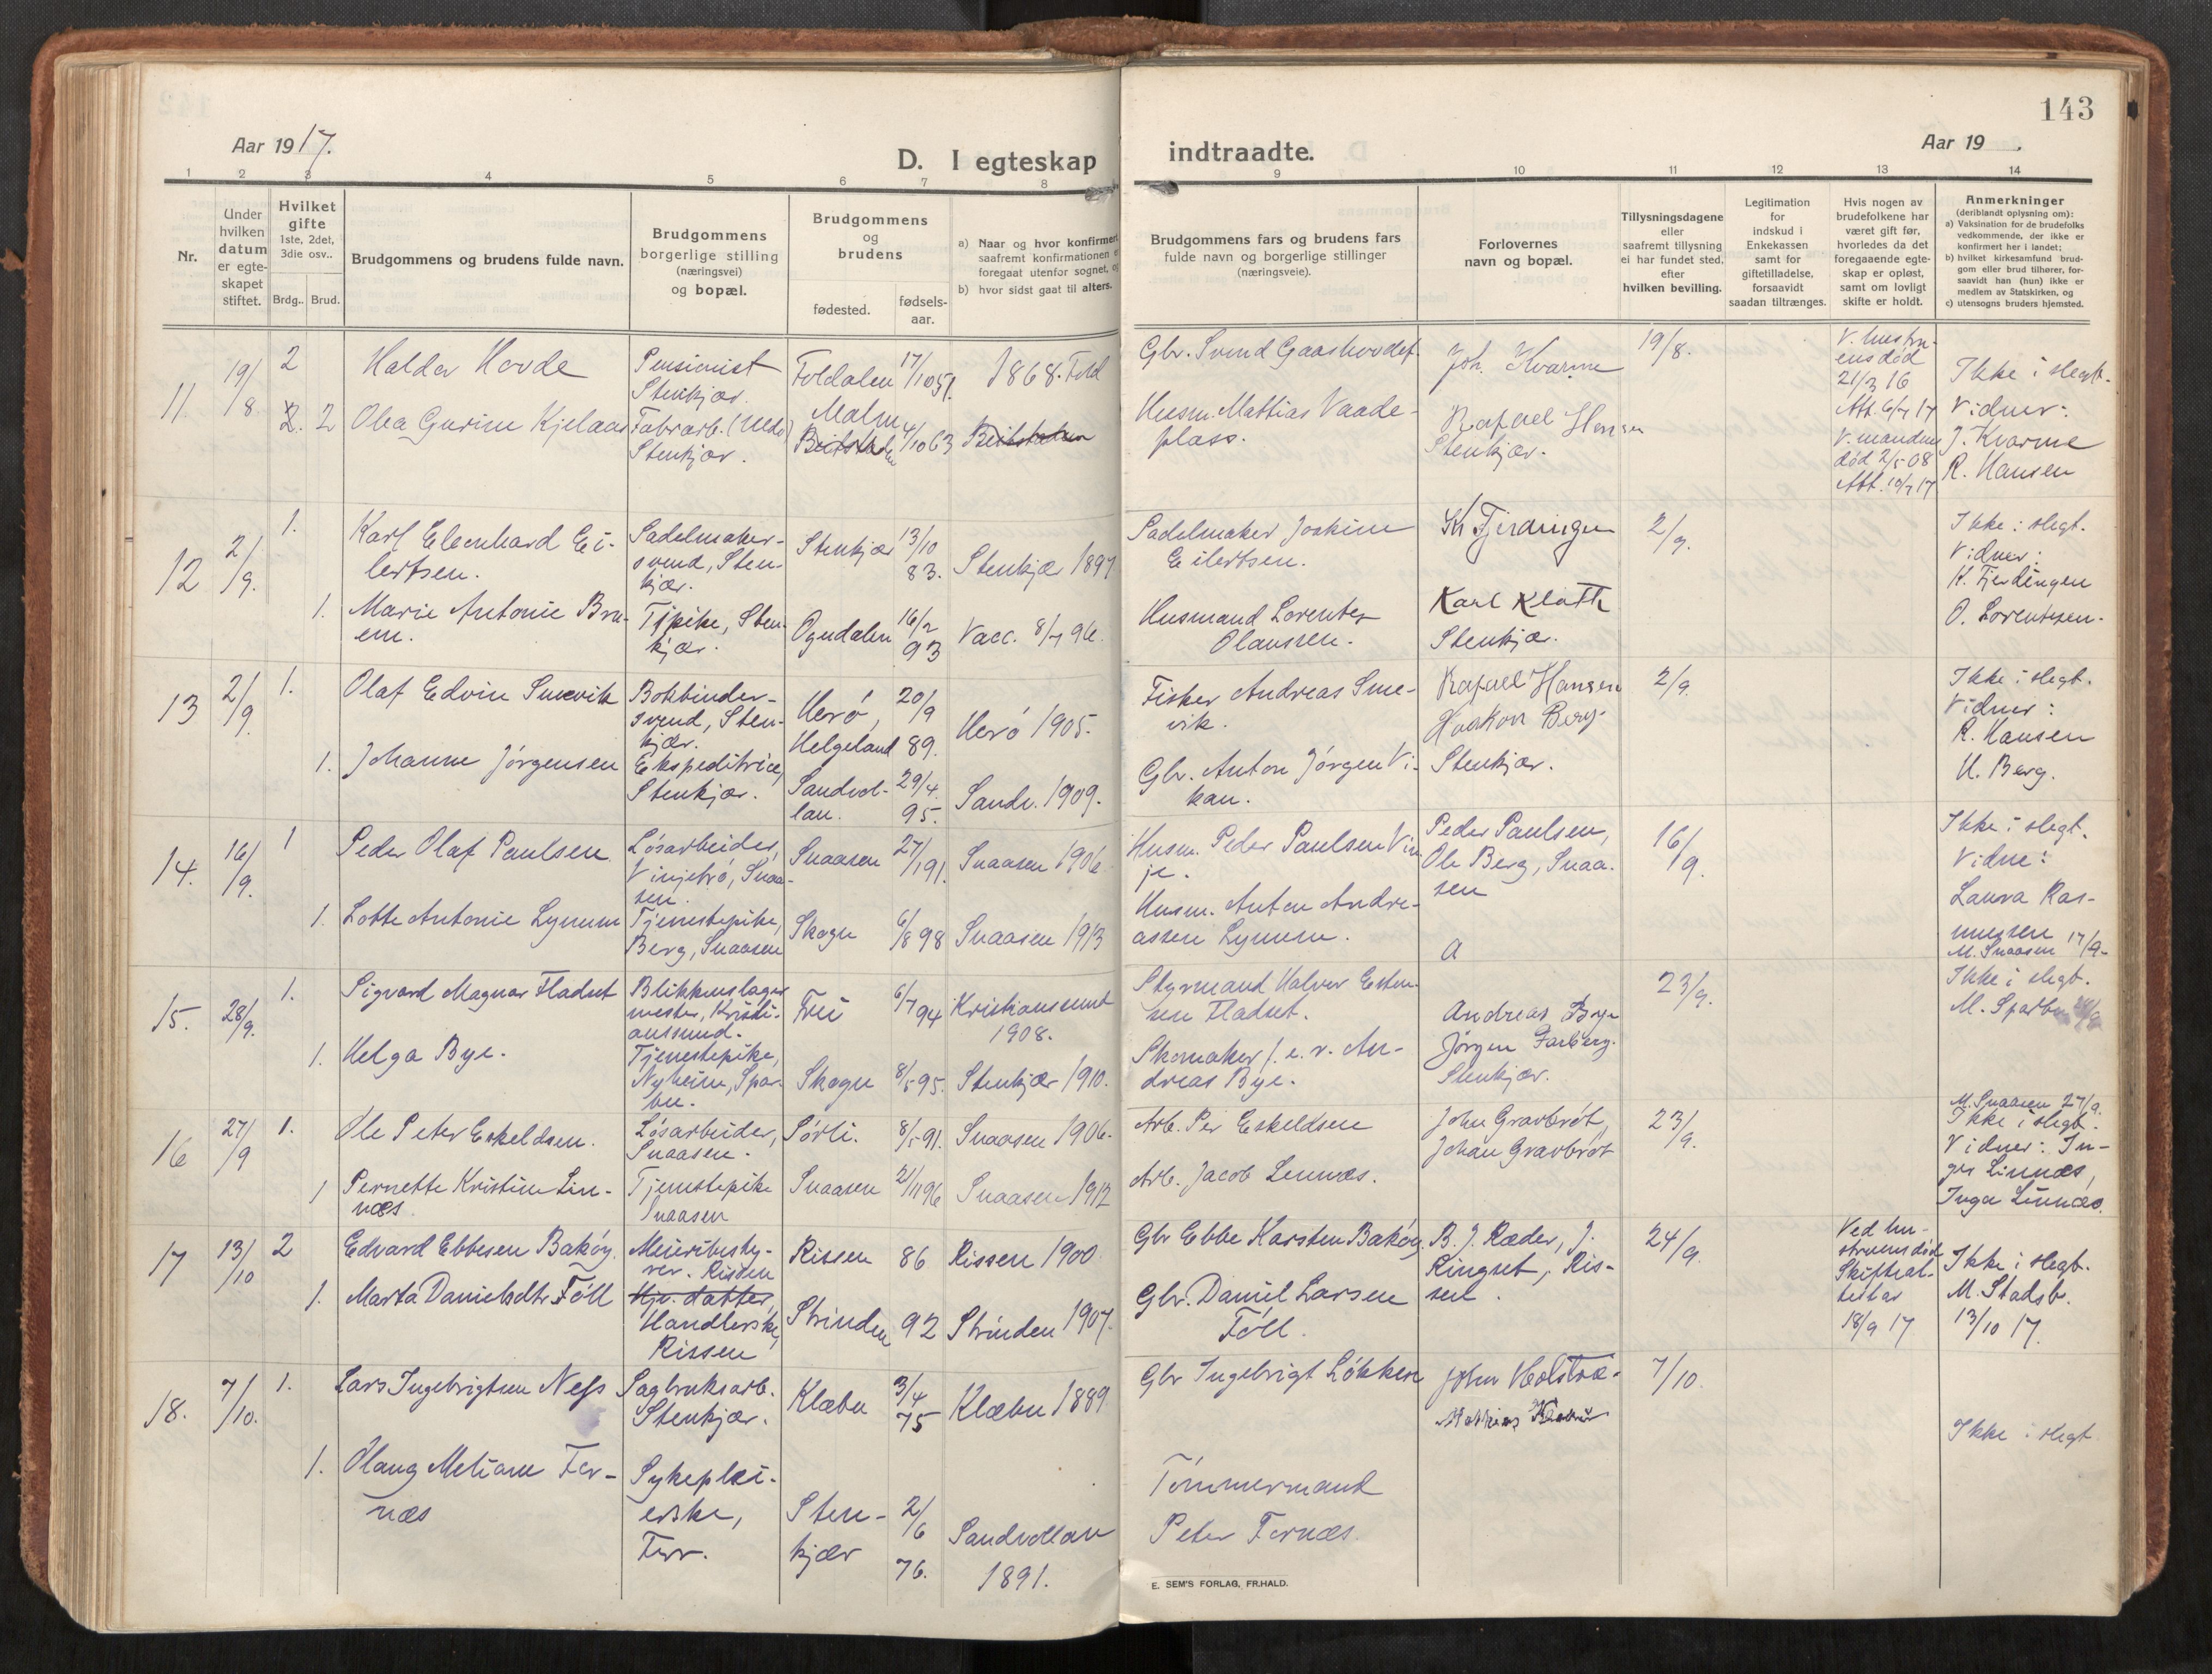 143
Aar 1917.
D. I egteskap
indtraadte.
Aar 19 .
1 2 3 4 5 6 7 8 9 10 11 12 13 14
Nr.
Under hvilken datum er egte-skapet stiftet.
Hvilket gifte
1ste, 2det, 3die osv..
Brdg.. Brud.
Brudgommens og brudens fulde navn.
Brudgommens borgerlige stilling (næringsvei) og bopæl.
Brudgommens og brudens
fødested.
fødsels-aar.
a) Naar og hvor konfirmert
saafremt konfirmationen er
foregaat utenfor sognet, og
b) hvor sidst gaat til alters.
Brudgommens fars og brudens fars
fulde navn og borgerlige stillinger
(næringsveie).
Forlovernes
navn og bopæl.
Tillysningsdagene
eller
saafremt tillysning
ei har fundet sted,
efter
hvilken bevilling.
Legitimation
for
indskud i
Enkekassen
samt for
giftetilladelse,
forsaavidt
saadan tiltrænges.
Hvis nogen av
brudefolkene har
været gift før,
hvorledes da det
foregaaende egte-
skap er opløst,
samt om lovligt
skifte er holdt.
Anmerkninger
(deriblandt oplysning om):
a) Vaksination for de brudefolks
vedkommende, der ikke er
konfirmert her i landet;
b) hvilket kirkesamfund brud-
gom eller brud tilhører, for-
saavidt han (hun) ikke er
medlem av Statskirken, og
c) utensogns bruders hjemsted.
11 19/8 2
Haldor Hovde
Pensionist
Stenkjær.
Foldalen 17/10 51.
1868. Fold
Gbr. Svend Gaashovdet
Joh. Kvarme
19/8.
V. hustru-
ens død
21/3 16
Att. 6/7 17
Ikke i slegt.
Vidner:
J. Kvarme
R. Hansen
2. 2
Olea Gurine Kjelaas
Fabrarb. (Uldv)
Stenkjær.
Malm
Beitstaden 4/10 63
Beitstaden
Husm. Mattias Vaade-
plass.
Rafael Hansen
Stenkjær.
V. mandens
død 2/5 08
Att. 10/7 17
12 2/9. 1.
Karl Eleenhard Ei-
lertsen.
Sadelmaker-
svend, Sten-
kjær.
Stenkjær 13/10 83.
Stenkjær 1897
Sadelmaker Joakim
Eilertsen.
Kr Fjerdingen
2/9.
Ikke i slegt.
Vidner:
K. Fjerdingen
O. Lorentzen.
1.
Marie Antonie Bru-
em.
Tjpike, Sten-
kjær.
Ogndalen 16/2 93
Vacc. 8/7 96.
Husmand Lorents
Olaussen.
Karl Kláth
Stenkjær.
13 2/9. 1.
Olaf Edvin Smevik
Bokbinder-
svend, Sten-
kjær.
Herø,
Helgeland 20/9 89.
Herø 1905.
Fisker Andreas Sme-
vik.
Rafael Hansen
Haakon Berg
Stenkjær.
2/9.
Ikke i slegt.
Vidner:
R. Hansen
H. Berg.
1.
Johanne Jørgensen
Ekspeditrice,
Stenkjær.
Sandvol-
lan. 29/4 95.
Sandv. 1909.
Gbr. Anton Jørgen Vi-
kan.
14. 16/9. 1
Peder Olaf Paulsen
Løsarbeider,
Vinjebrø, Snaa-
sen.
Snaasen 27/1 91.
Snaasen 1906
Husm. Peder Paulsen Vin-
je.
Peder Paulsen,
Ole Berg, Snaa-
sen
16/9.
Ikke i slegt.
Vidne:
Laura Ras-
mussen
M. Snaasen 17/9.
1.
Lotte Antonie Lynum
Tjenestepike,
Berg, Snaasen
Skogn 6/8 98
Snaasen 1913
Husm. Anton Andre-
assen Lynum.
15. 28/9. 1.
Sigvard Magnar Fladset
Blikkenslager
mester, Kristi-
ansund.
Frei 6/7 94
Kristiansund
1908.
Styrmand Halvor Esten-
sen Fladset.
Andreas Bye
Jørgen Farberg.
Stenkjær.
23/9.
Ikke i slegt.
M. Sparbu 28/9
1.
Helga Bye.
Tjenestepike,
Nyheim, Spar-
bu.
Skogn 8/5 95.
Stenkjær 1910.
Skomaker f. e. v. An-
dreas Bye.
16 27/9 1.
Ole Peter Eskeldsen.
Løsarbeider,
Snaasen.
Sørli. 8/5 91.
Snaasen 1906.
Arb. Per Eskeldsen
John Gravbrøt,
Johan Gravbrøt
23/9.
M. Snaasen 27/9.
Ikke i slegt.
Vidner: In-
ger Linnæs,
Inga Linnæs.
1
Pernette Kristine Lin-
næs.
Tjenstepike
Snaasen
Snaasen 21/11 96
Snaasen 1912
Arb. Jacob Lennæs.
17 13/10 2
Edvard Ebbesen Bakøy.
Meieribesty-
rer. Rissen
Rissen 86
Rissen 1900
Gbr Ebbe Karsten Bakøy.
B. J. Ræder, J.
Ringset, Ris-
sen.
24/9.
Ved hu-
struens død
Skifteat-
test av
18/9 17
Ikke i slegt.
M. Stadsb.
13/10 17.
1.
Marta Danielsdtr. Føll
Gbr. datter,
Handlerske,
Rissen
Strinden 92
Strinden 1907.
Gbr. Daniel Larsen
Føll.
18. 7/10. 1.
Lars Ingebrigtsen Ness
Sagbruksarb.
Stenkjær.
Klæbu 3/4 75
Klæbu 1889.
Gbr Ingebrigt Løkken
John Holstad.
7/10.
Ikke i slegt
1.
Olaug Metiane Fer-
næs
Sykeplei-
erske,
Sten-
kjær 2/6 76.
Sandvollan
1891.
Tømmermand
Peter Fernæs.
E. SEM'S FORLAG, FR.HALD.